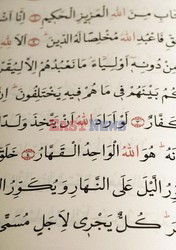 مِنَ اللهِ الْعَزِيزِ الْحَكِيمِ ﴿١﴾ إِنَّا
فَاعْبُدِ اللهَ مُخْلِصًا لَهُ الدِّينَ ﴿٢﴾ أَلَا
مِنْ دُونِهِ أَوْلِيَاءَ مَا نَعْبُدُهُمْ إِلَّا
بَيْنَهُمْ فِي مَا هُمْ فِيهِ يَخْتَلِفُونَ
كَفَّارٌ ﴿٣﴾ لَوْ أَرَادَ اللهُ أَنْ يَتَّخِذَ وَلَدًا
EASTNEWS
هُوَ اللهُ الْوَاحِدُ الْقَهَّارُ ﴿٤﴾ خَلَقَ
الَّيْلَ عَلَى النَّهَارِ وَيُكَوِّرُ
كُلٌّ يَجْرِي لِأَجَلٍ مُسَمًّى